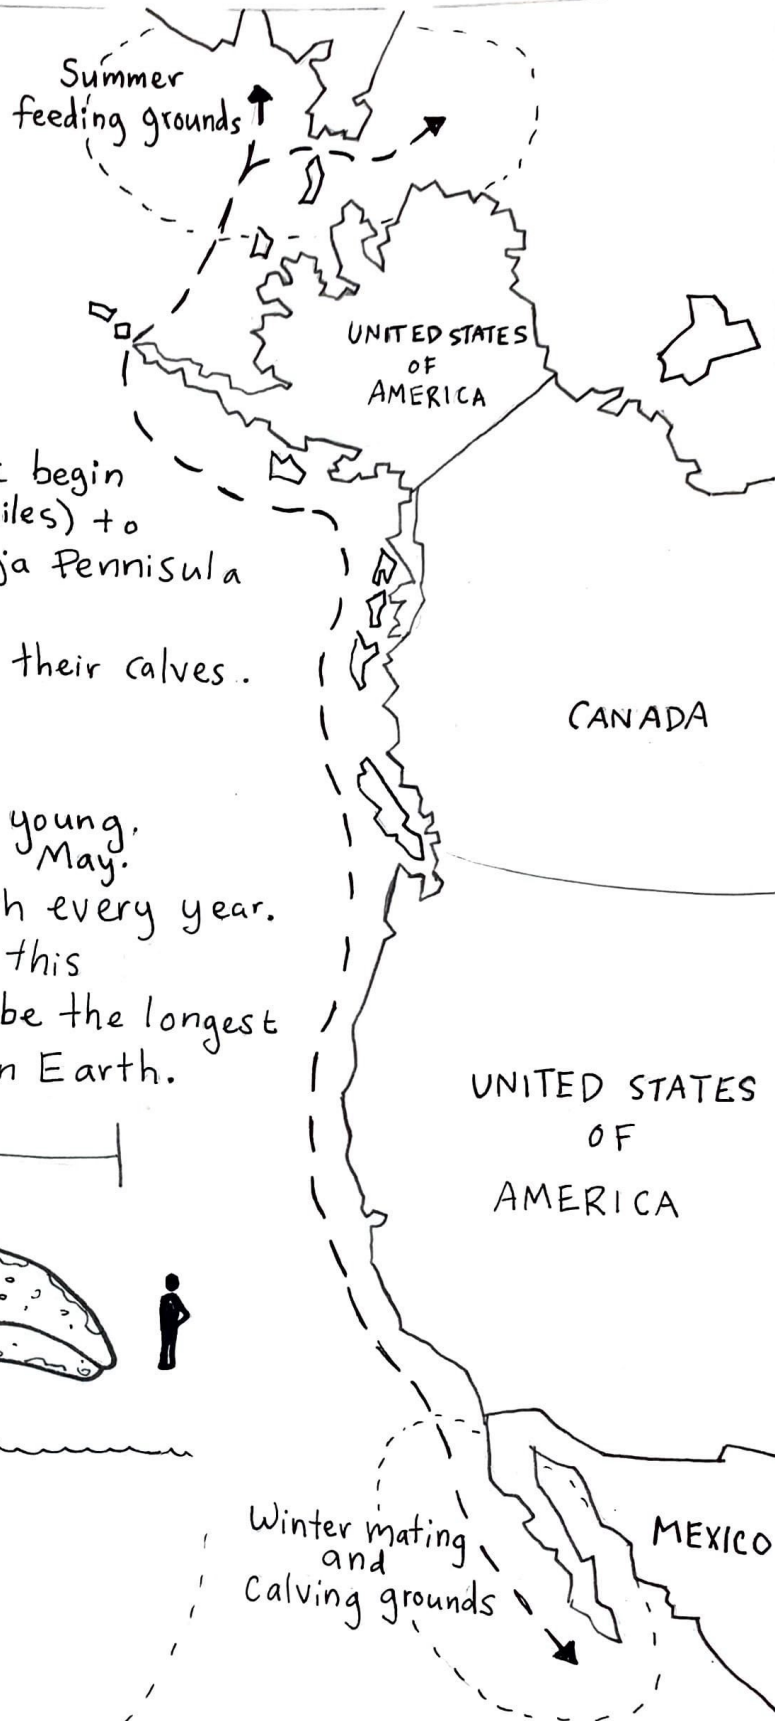 Summer
feeding grounds
UNITED STATES
OF
AMERICA
begin
iles) to
ja Pennisula
their calves.
CANADA
young.
May.
h every year.
this
be the longest
n Earth.
UNITED STATES
OF
AMERICA
MEXICO
Winter mating
and
Calving grounds